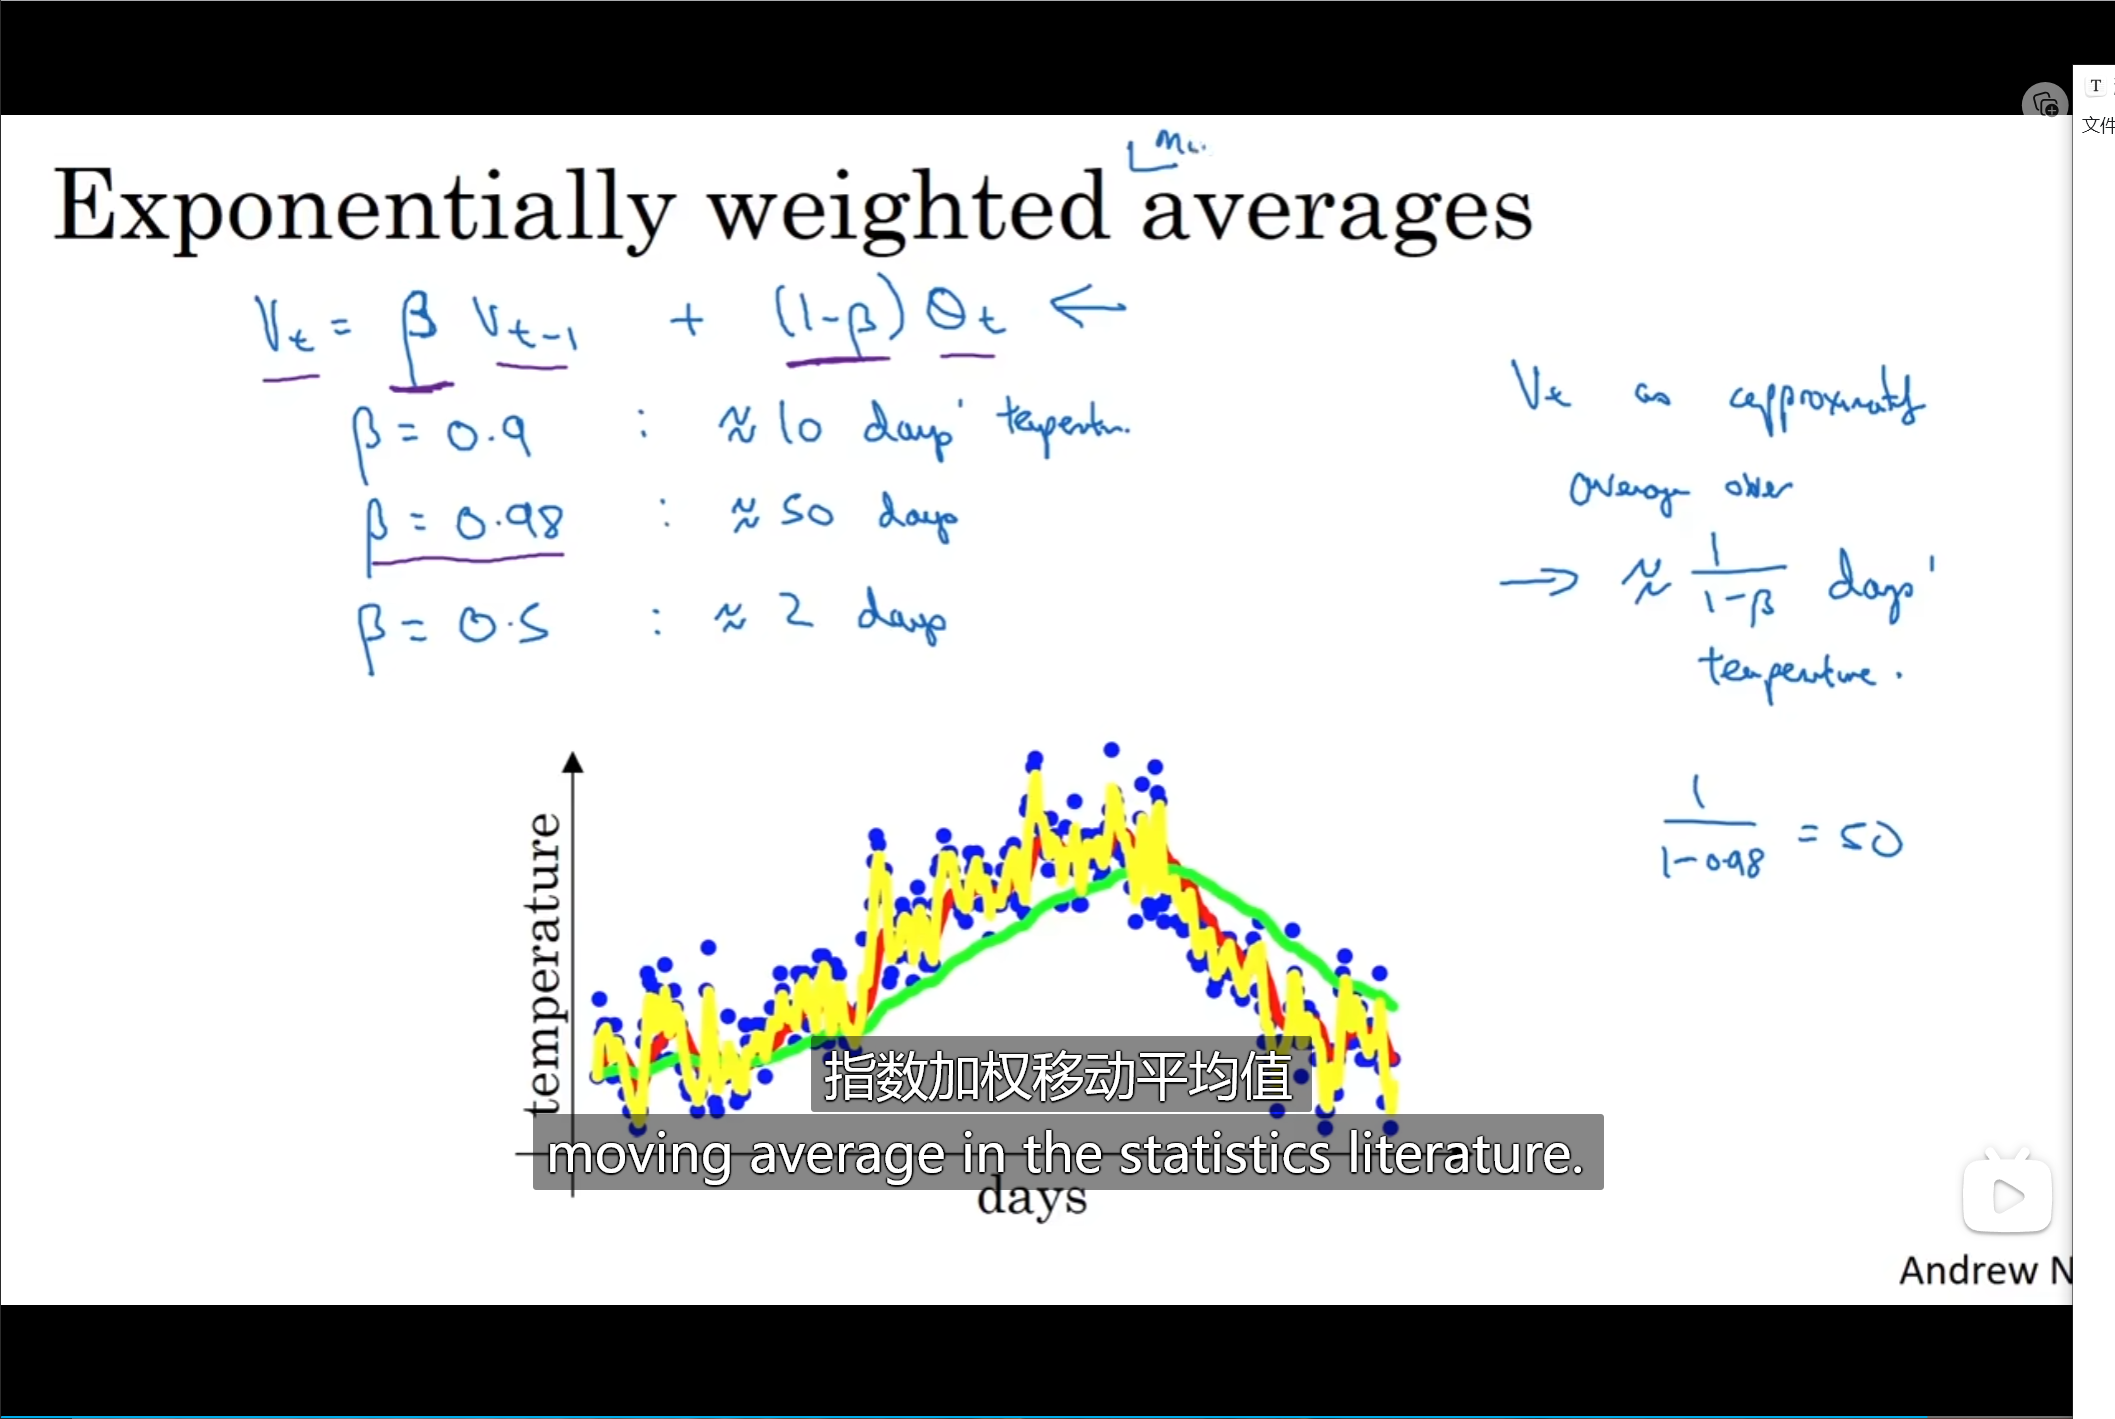 T
文件
Exponentially weighted averages
V_t = β V_{t-1} + (1-β) θ_t ←
β = 0.9 : ≈ 10 days'
β = 0.98 : ≈ 50 days
β = 0.5 : ≈ 2 days
V_t as approximately
average over
→ ≈ 1/(1-β) days'
temperature.
1/(1-0.98) = 50
temperature
指数加权移动平均值
moving average in the statistics literature.
days
Andrew N